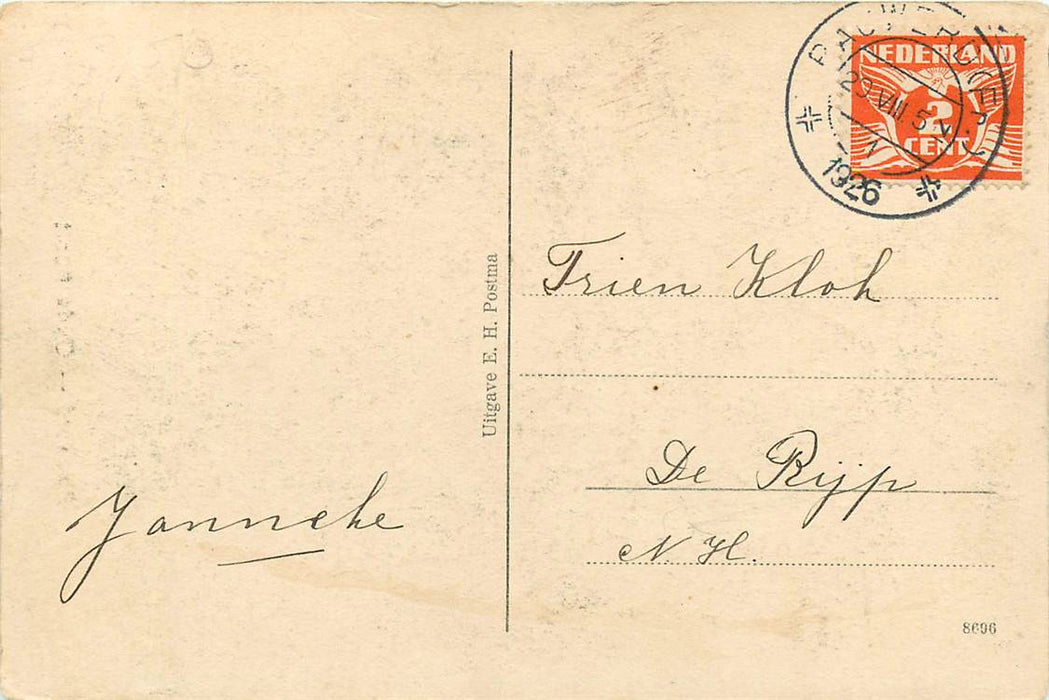 NEDERLAND
2
CENT
29 VIII 5
1926
Trien Klok
De Rijp
N. H.
Janneke
Uitgave E. H. Postma
8696